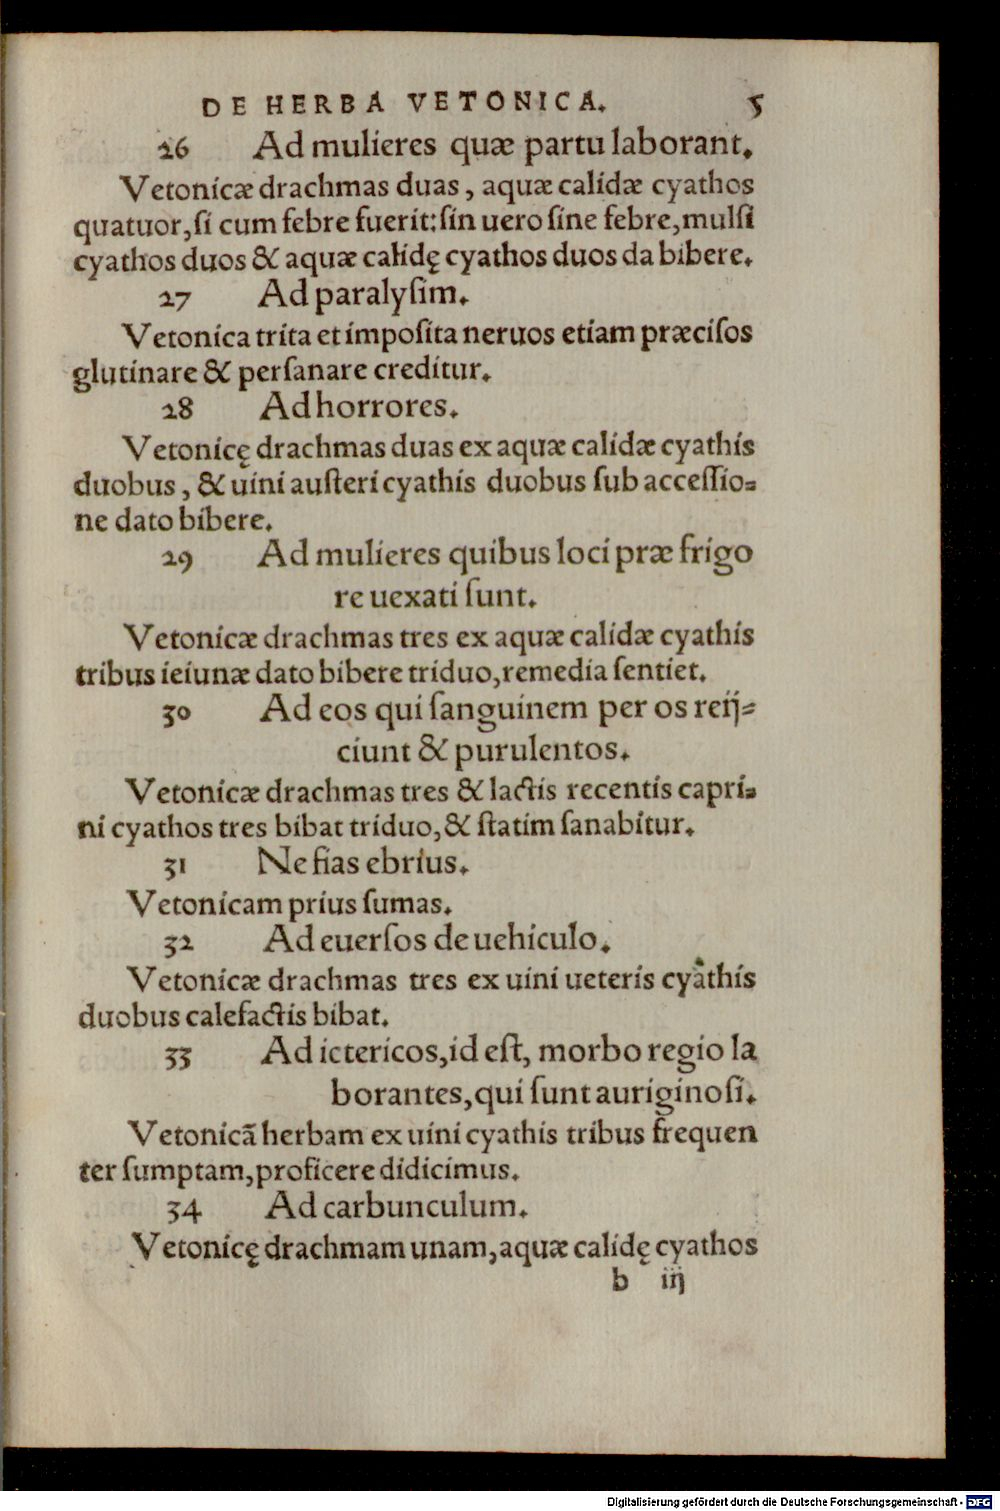 DE HERBA VETONICA. 5
26 Ad mulieres quæ partu laborant.
Vetonicæ drachmas duas, aquæ calidæ cyathos
quatuor, ſi cum febre fuerit: ſin uero ſine febre, mulſi
cyathos duos & aquæ calidę cyathos duos da bibere.
27 Ad paralyſim.
Vetonica trita et impoſita neruos etiam præciſos
glutinare & perſanare creditur.
28 Ad horrores.
Vetonicę drachmas duas ex aquæ calidæ cyathis
duobus, & uini auſteri cyathis duobus ſub acceſſio=
ne dato bibere.
29 Ad mulieres quibus loci præ frigo
re uexati ſunt.
Vetonicæ drachmas tres ex aquæ calidæ cyathis
tribus ieiunæ dato bibere triduo, remedia ſentiet.
30 Ad eos qui ſanguinem per os reij=
ciunt & purulentos.
Vetonicæ drachmas tres & lactis recentis capri=
ni cyathos tres bibat triduo, & ſtatim ſanabitur.
31 Ne fias ebrius.
Vetonicam prius ſumas.
32 Ad euerſos de uehiculo.
Vetonicæ drachmas tres ex uini ueteris cyathis
duobus calefactis bibat.
33 Ad ictericos, id eſt, morbo regio la
borantes, qui ſunt auriginoſi.
Vetonicã herbam ex uini cyathis tribus frequen
ter ſumptam, proficere didicimus.
34 Ad carbunculum.
Vetonicę drachmam unam, aquæ calidę cyathos
b iij
Digitalisierung gefördert durch die Deutsche Forschungsgemeinschaft - DFG